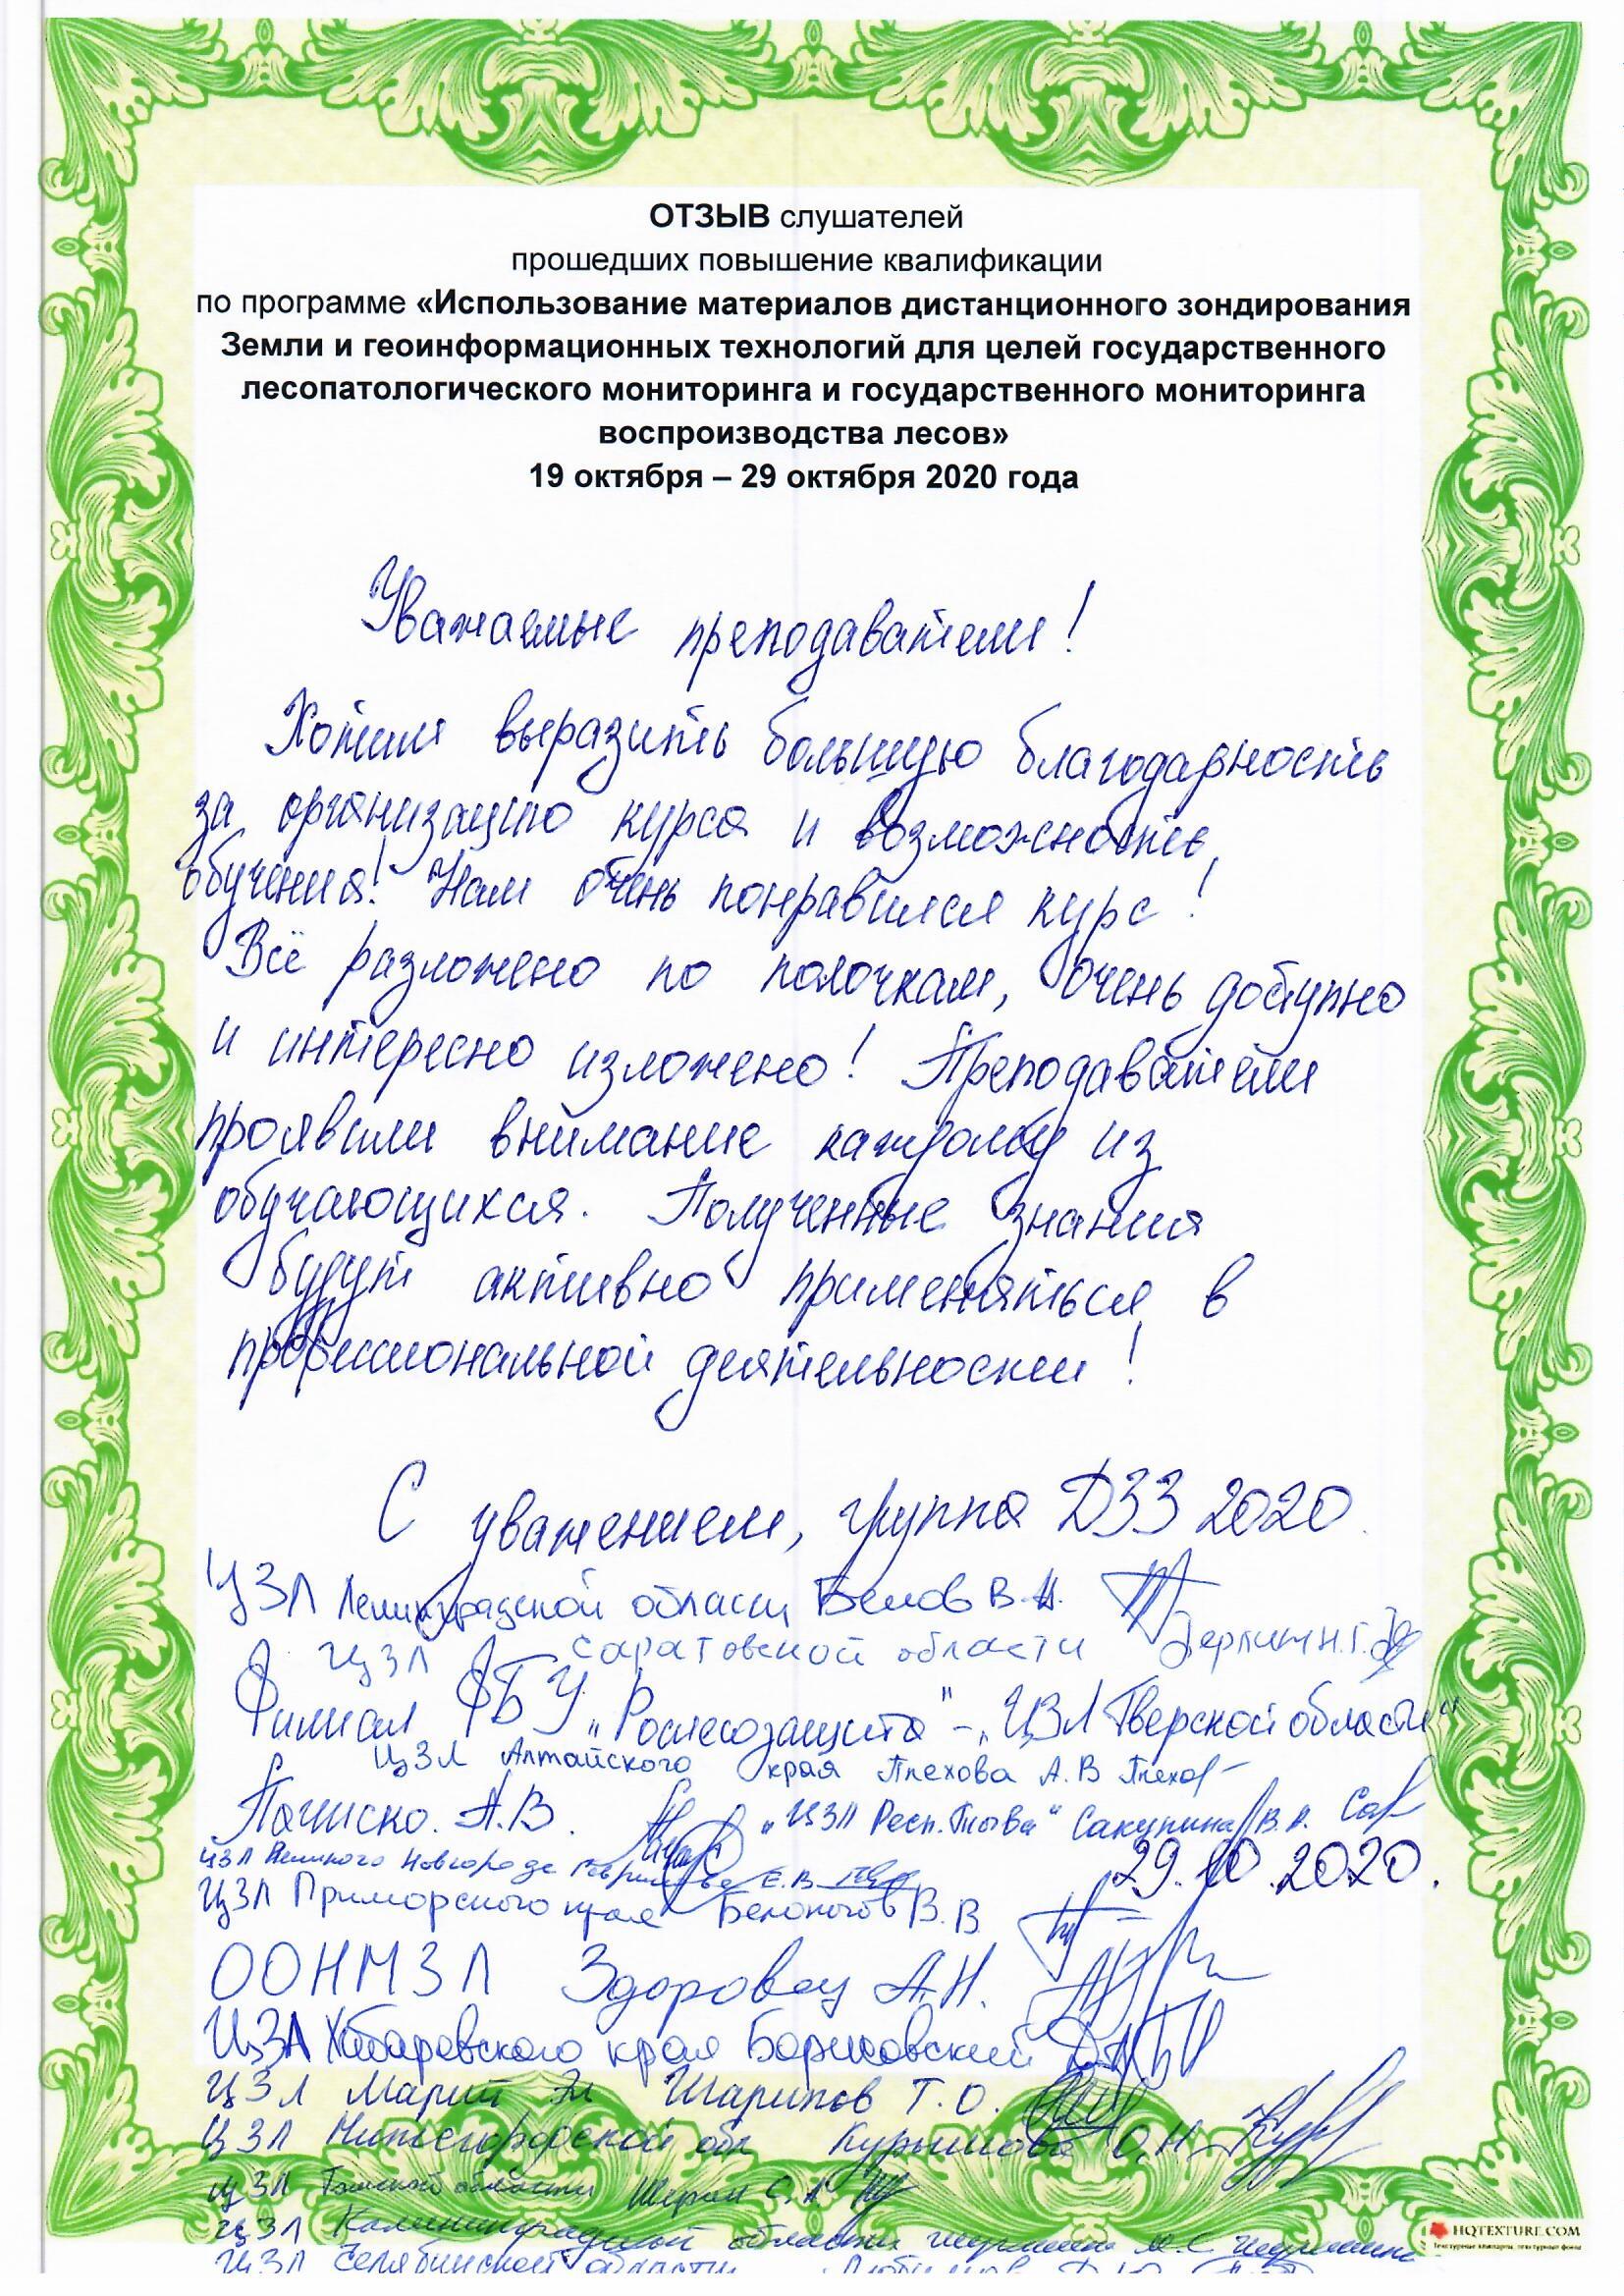 ОТЗЫВ слушателей
прошедших повышение квалификации
по программе «Использование материалов дистанционного зондирования
Земли и геоинформационных технологий для целей государственного
лесопатологического мониторинга и государственного мониторинга
воспроизводства лесов»
19 октября – 29 октября 2020 года
Уважаемые преподаватели!
Хотим выразить большую благодарность
за организацию курса и возможность
обучения! Нам очень понравился курс!
Всё разложено по полочкам, очень доступно
и интересно изложено! Преподаватели
проявили внимание каждому из
обучающихся. Полученные знания
будут активно применяться в
профессиональной деятельности!
С уважением, группа ДЗЗ 2020.
ЦЗЛ Ленинградской области Белов В.
ЦЗЛ Саратовской области Н.Г.
Филиал ФБУ „Рослесозащита" - „ЦЗЛ Тверской области"
ЦЗЛ Алтайского края Плехова А.В
А.В. „ЦЗЛ Респ. Тыва" В.А.
ЦЗЛ Великого Новгорода Е.В
29.10.2020.
ЦЗЛ Приморского края Белоногов В.В
ООНМЗЛ Здоровец А.Н.
ЦЗЛ Хабаровского края Борисовский
ЦЗЛ Марий Эл Шарипов Т.О.
ЦЗЛ Нижегородской обл О.Н.
ЦЗЛ Томской области С.А
ЦЗЛ Калининградской области
ЦЗЛ Челябинской области
HQTEXTURE.COM